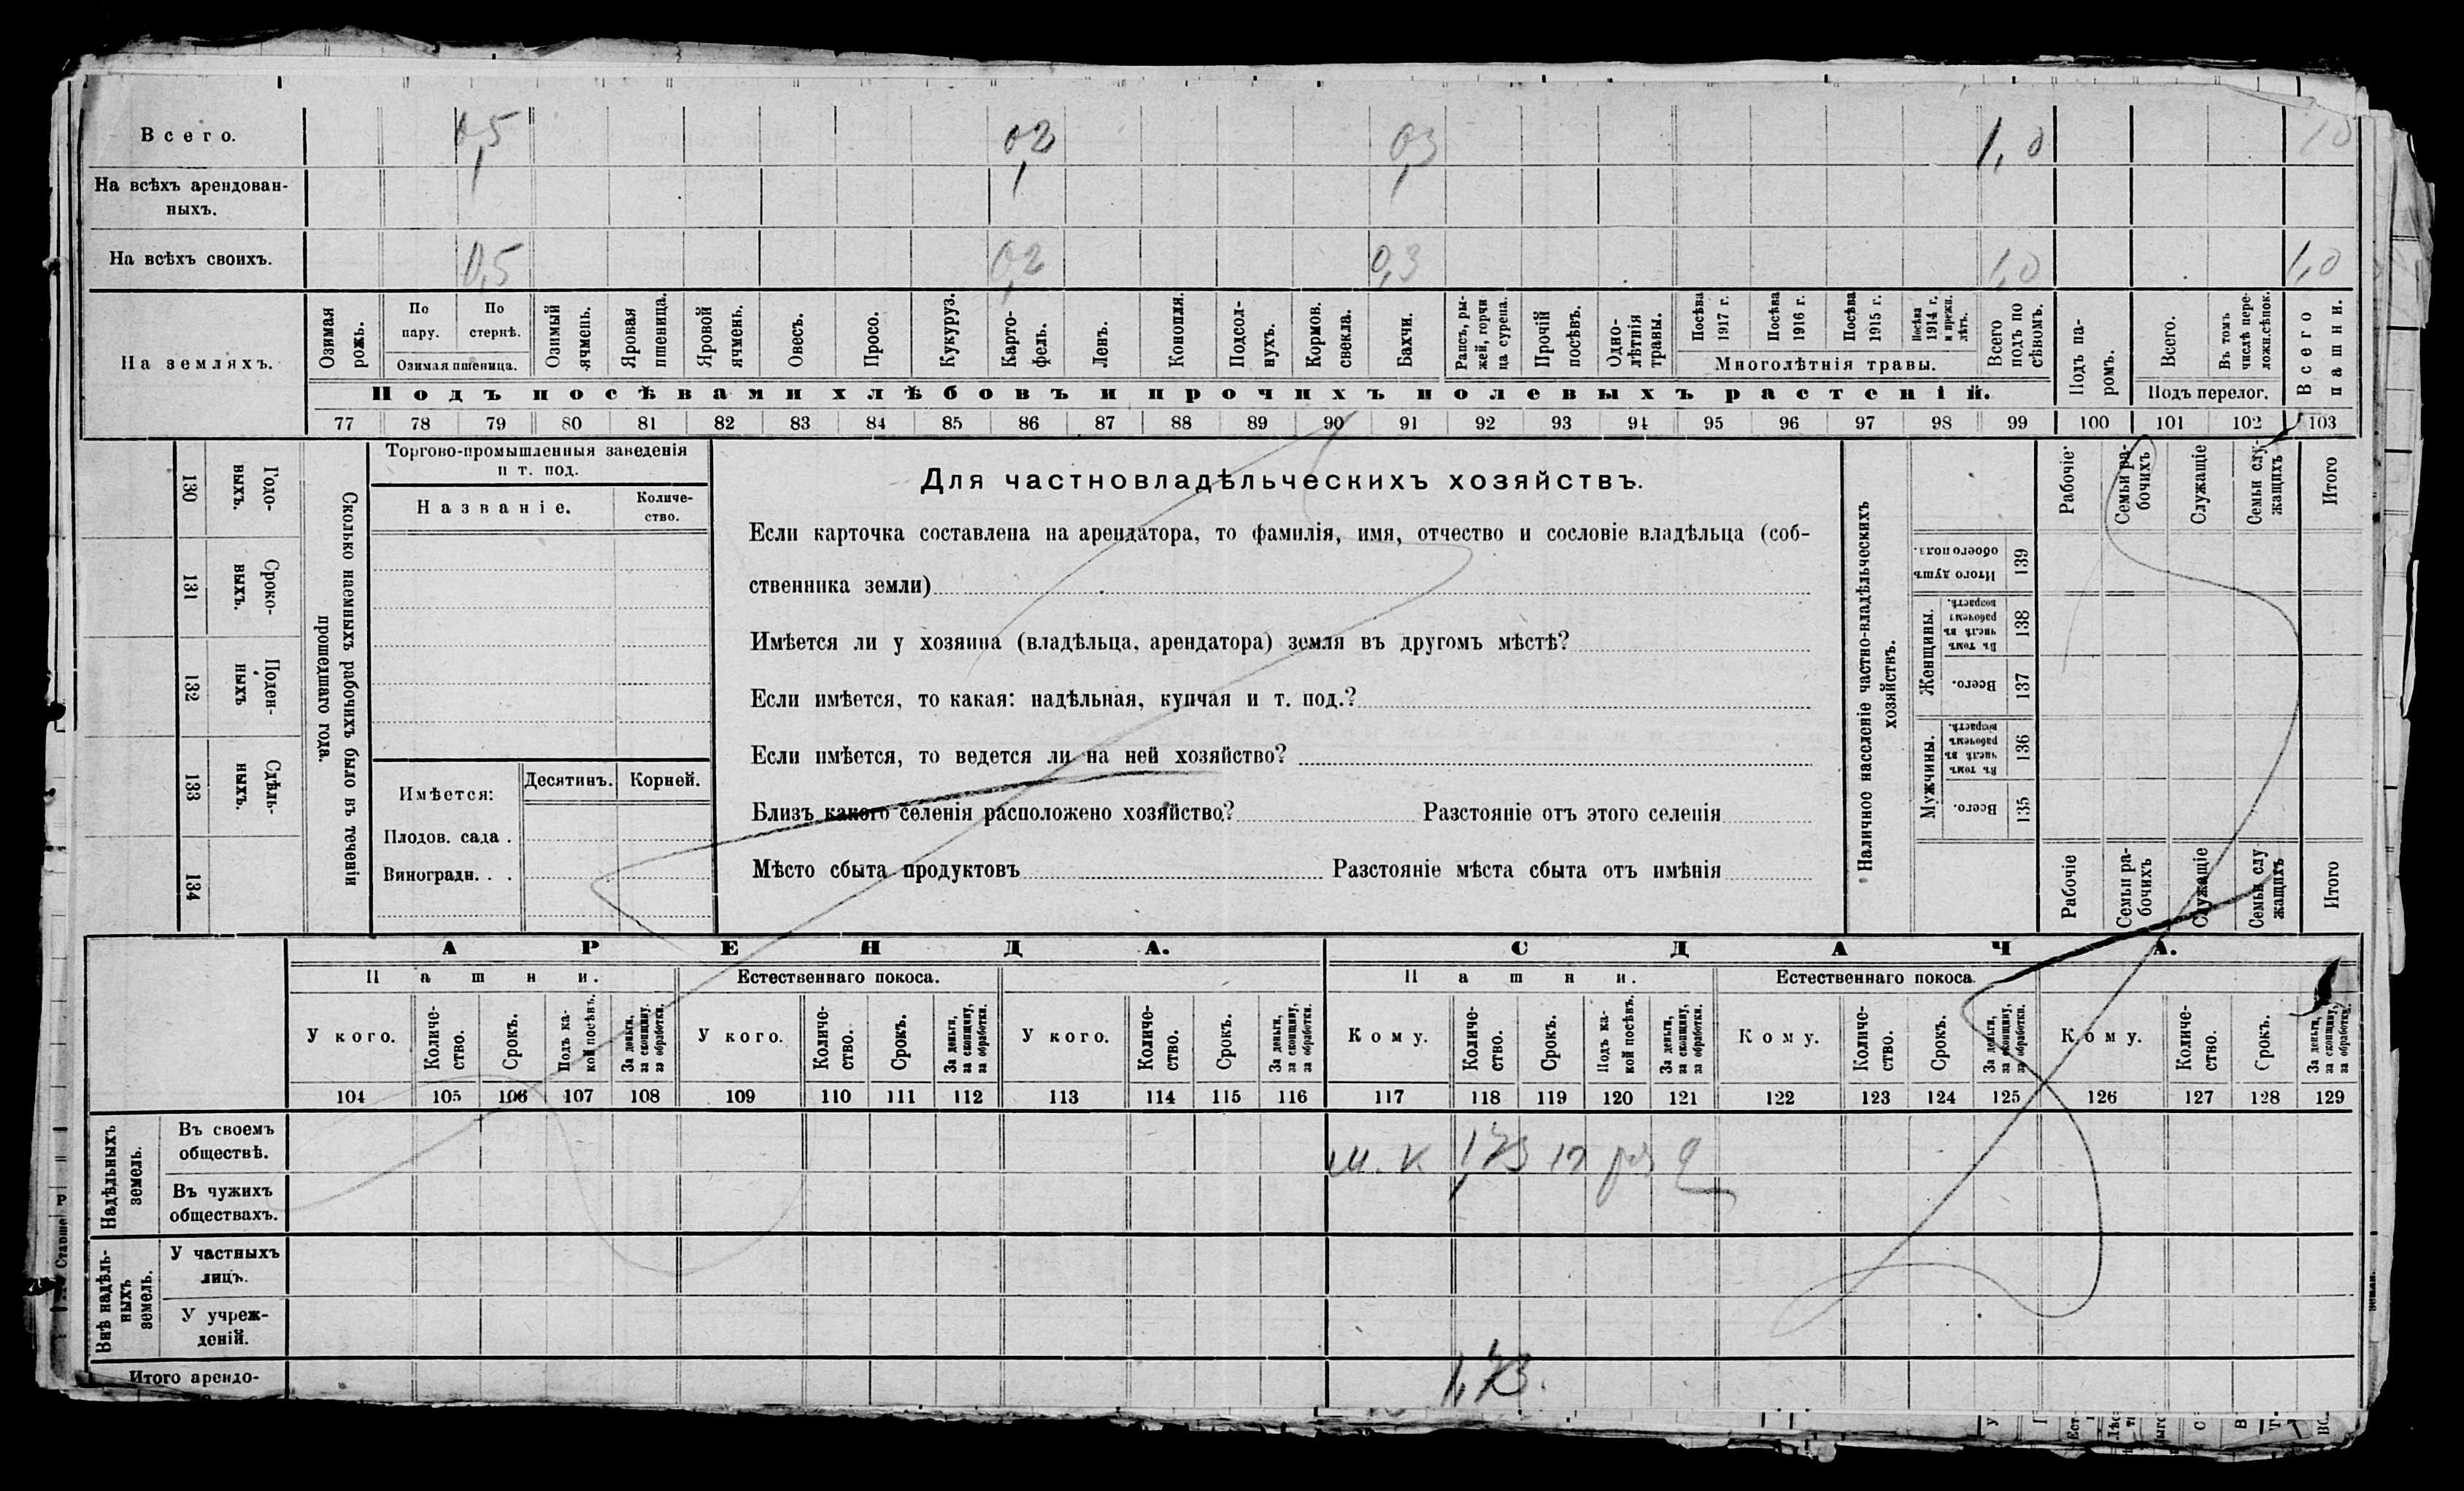 Всего. 0,5 0,2 0,3 1,0 1,0
На всѣхъ арендован-
ныхъ.
На всѣхъ своихъ. 0,5 0,2 0,3 1,0 1,0
На земляхъ.
Озимая рожь.
По пару.
По стернѣ.
Озимая пшеница.
Озимый ячмень.
Яровая пшеница.
Яровой ячмень.
Овесъ.
Просо.
Кукуруз.
Карто-
фель.
Ленъ.
Конопля.
Подсол-
нухъ.
Кормов. свекла.
Бахчи.
Рапсъ, ры-
жей, горчи
ца сурепа.
Прочій посѣвъ.
Одно-
лѣтнія
травы.
Посѣва 1917 г.
Посѣва 1916 г.
Посѣва 1915 г.
Посѣва 1914 г. и прежн. лѣтъ.
Многолѣтнія травы.
Всего подъ по
сѣвомъ.
Подъ па-
ромъ.
Всего.
Въ томъ числѣ пере-
ложн.сѣнок.
Подъ перелог.
Всего пашни.
Подъ посѣвами хлѣбовъ и прочихъ полевыхъ растеній.
77 78 79 80 81 82 83 84 85 86 87 88 89 90 91 92 93 94 95 96 97 98 99 100 101 102 103
130 Годо-
выхъ.
131 Сроко-
выхъ.
132 Поден-
ныхъ
133 Сдѣль-
ныхъ.
134
Сколько наемныхъ рабочихъ было въ теченіи
прошедшаго года.
Торгово-промышленныя заведенія
и т. под.
Названіе.
Количе-
ство.
Имѣется:
Десятинъ. Корней.
Плодов. сада .
Виноградн. . .
Для частновладѣльческихъ хозяйствъ.
Если карточка составлена на арендатора, то фамилія, имя, отчество и сословіе владѣльца (соб-
ственника земли)
Имѣется ли у хозяина (владѣльца, арендатора) земля въ другомъ мѣстѣ?
Если имѣется, то какая: надѣльная, купчая и т. под.?
Если имѣется, то ведется ли на ней хозяйство?
Близъ какого селенія расположено хозяйство? Разстояніе отъ этого селенія
Мѣсто сбыта продуктовъ Разстояніе мѣста сбыта отъ имѣнія
Наличное населеніе частно-владѣльческихъ
хозяйствъ.
Рабочіе
Семьи ра-
бочихъ
Служащіе
Семьи слу-
жащихъ
Итого
Итого душъ обоего пола. 139
Женщины.
Въ томъ числѣ въ рабочемъ возрастѣ. 138
Всего. 137
Мужчины.
Въ томъ числѣ въ рабочемъ возрастѣ. 136
Всего. 135
Рабочіе
Семьи ра-
бочихъ
Служащіе
Семьи слу
жащихъ
Итого
АРЕНДА. СДАЧА.
Пашни. Естественнаго покоса. Пашни. Естественнаго покоса.
У кого.
Количе-
ство.
Срокъ.
Подъ ка-
кой посѣвъ.
За деньги,
за скопщину,
за обработки.
У кого.
Количе-
ство.
Срокъ.
За деньги,
за скопщину,
за обработки.
У кого.
Количе-
ство.
Срокъ.
За деньги,
за скопщину,
за обработки.
Кому.
Количе-
ство.
Срокъ.
Подъ ка-
кой посѣвъ.
За деньги,
за скопщину,
за обработки.
Кому.
Количе-
ство.
Срокъ.
За деньги,
за скопщину,
за обработки.
Кому.
Количе-
ство.
Срокъ.
За деньги,
за скопщину,
за обработки.
104 105 106 107 108 109 110 111 112 113 114 115 116 117 118 119 120 121 122 123 124 125 126 127 128 129
Надѣльныхъ
земель.
Въ своемъ
обществѣ.
Въ чужихъ
обществахъ.
Внѣ надѣль-
ныхъ
земель.
У частныхъ
лицъ.
У учреж-
деній.
Итого арендо-